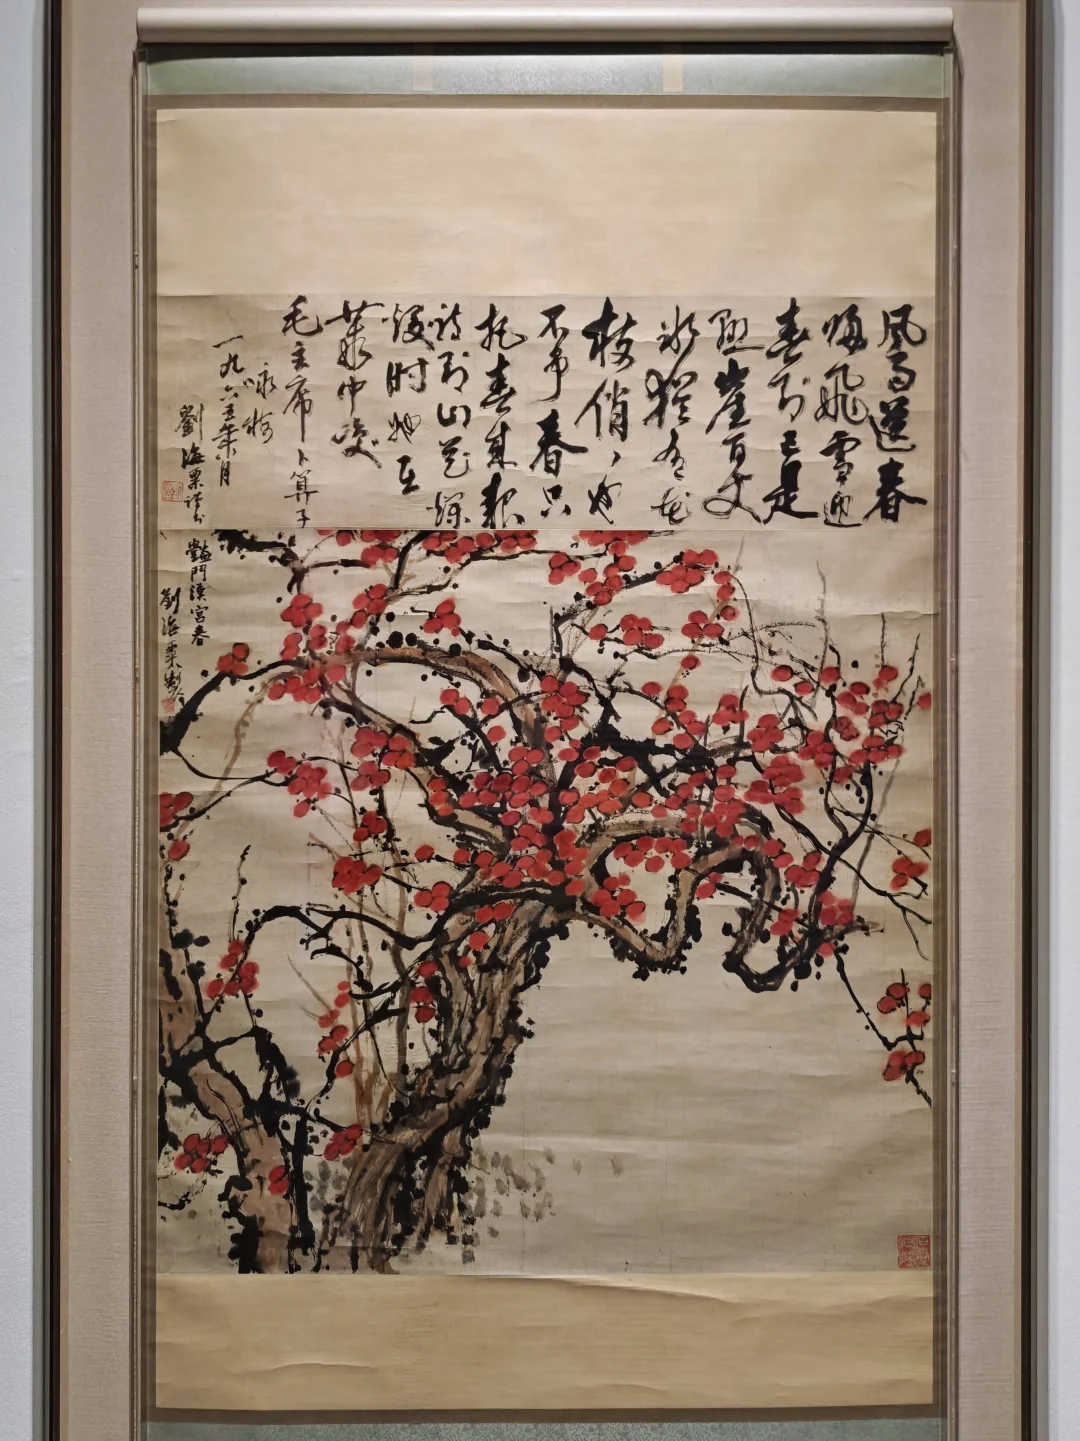 风雨送春
歸飛雪迎
春到已是
悬崖百丈
冰猶有花
枝俏俏也
不争春只
把春来报
待到山花爛
漫时她在
叢中笑
毛主席卜算子
咏梅
一九六五年八月
劉海粟
豔鬥漢宮春
劉海粟製